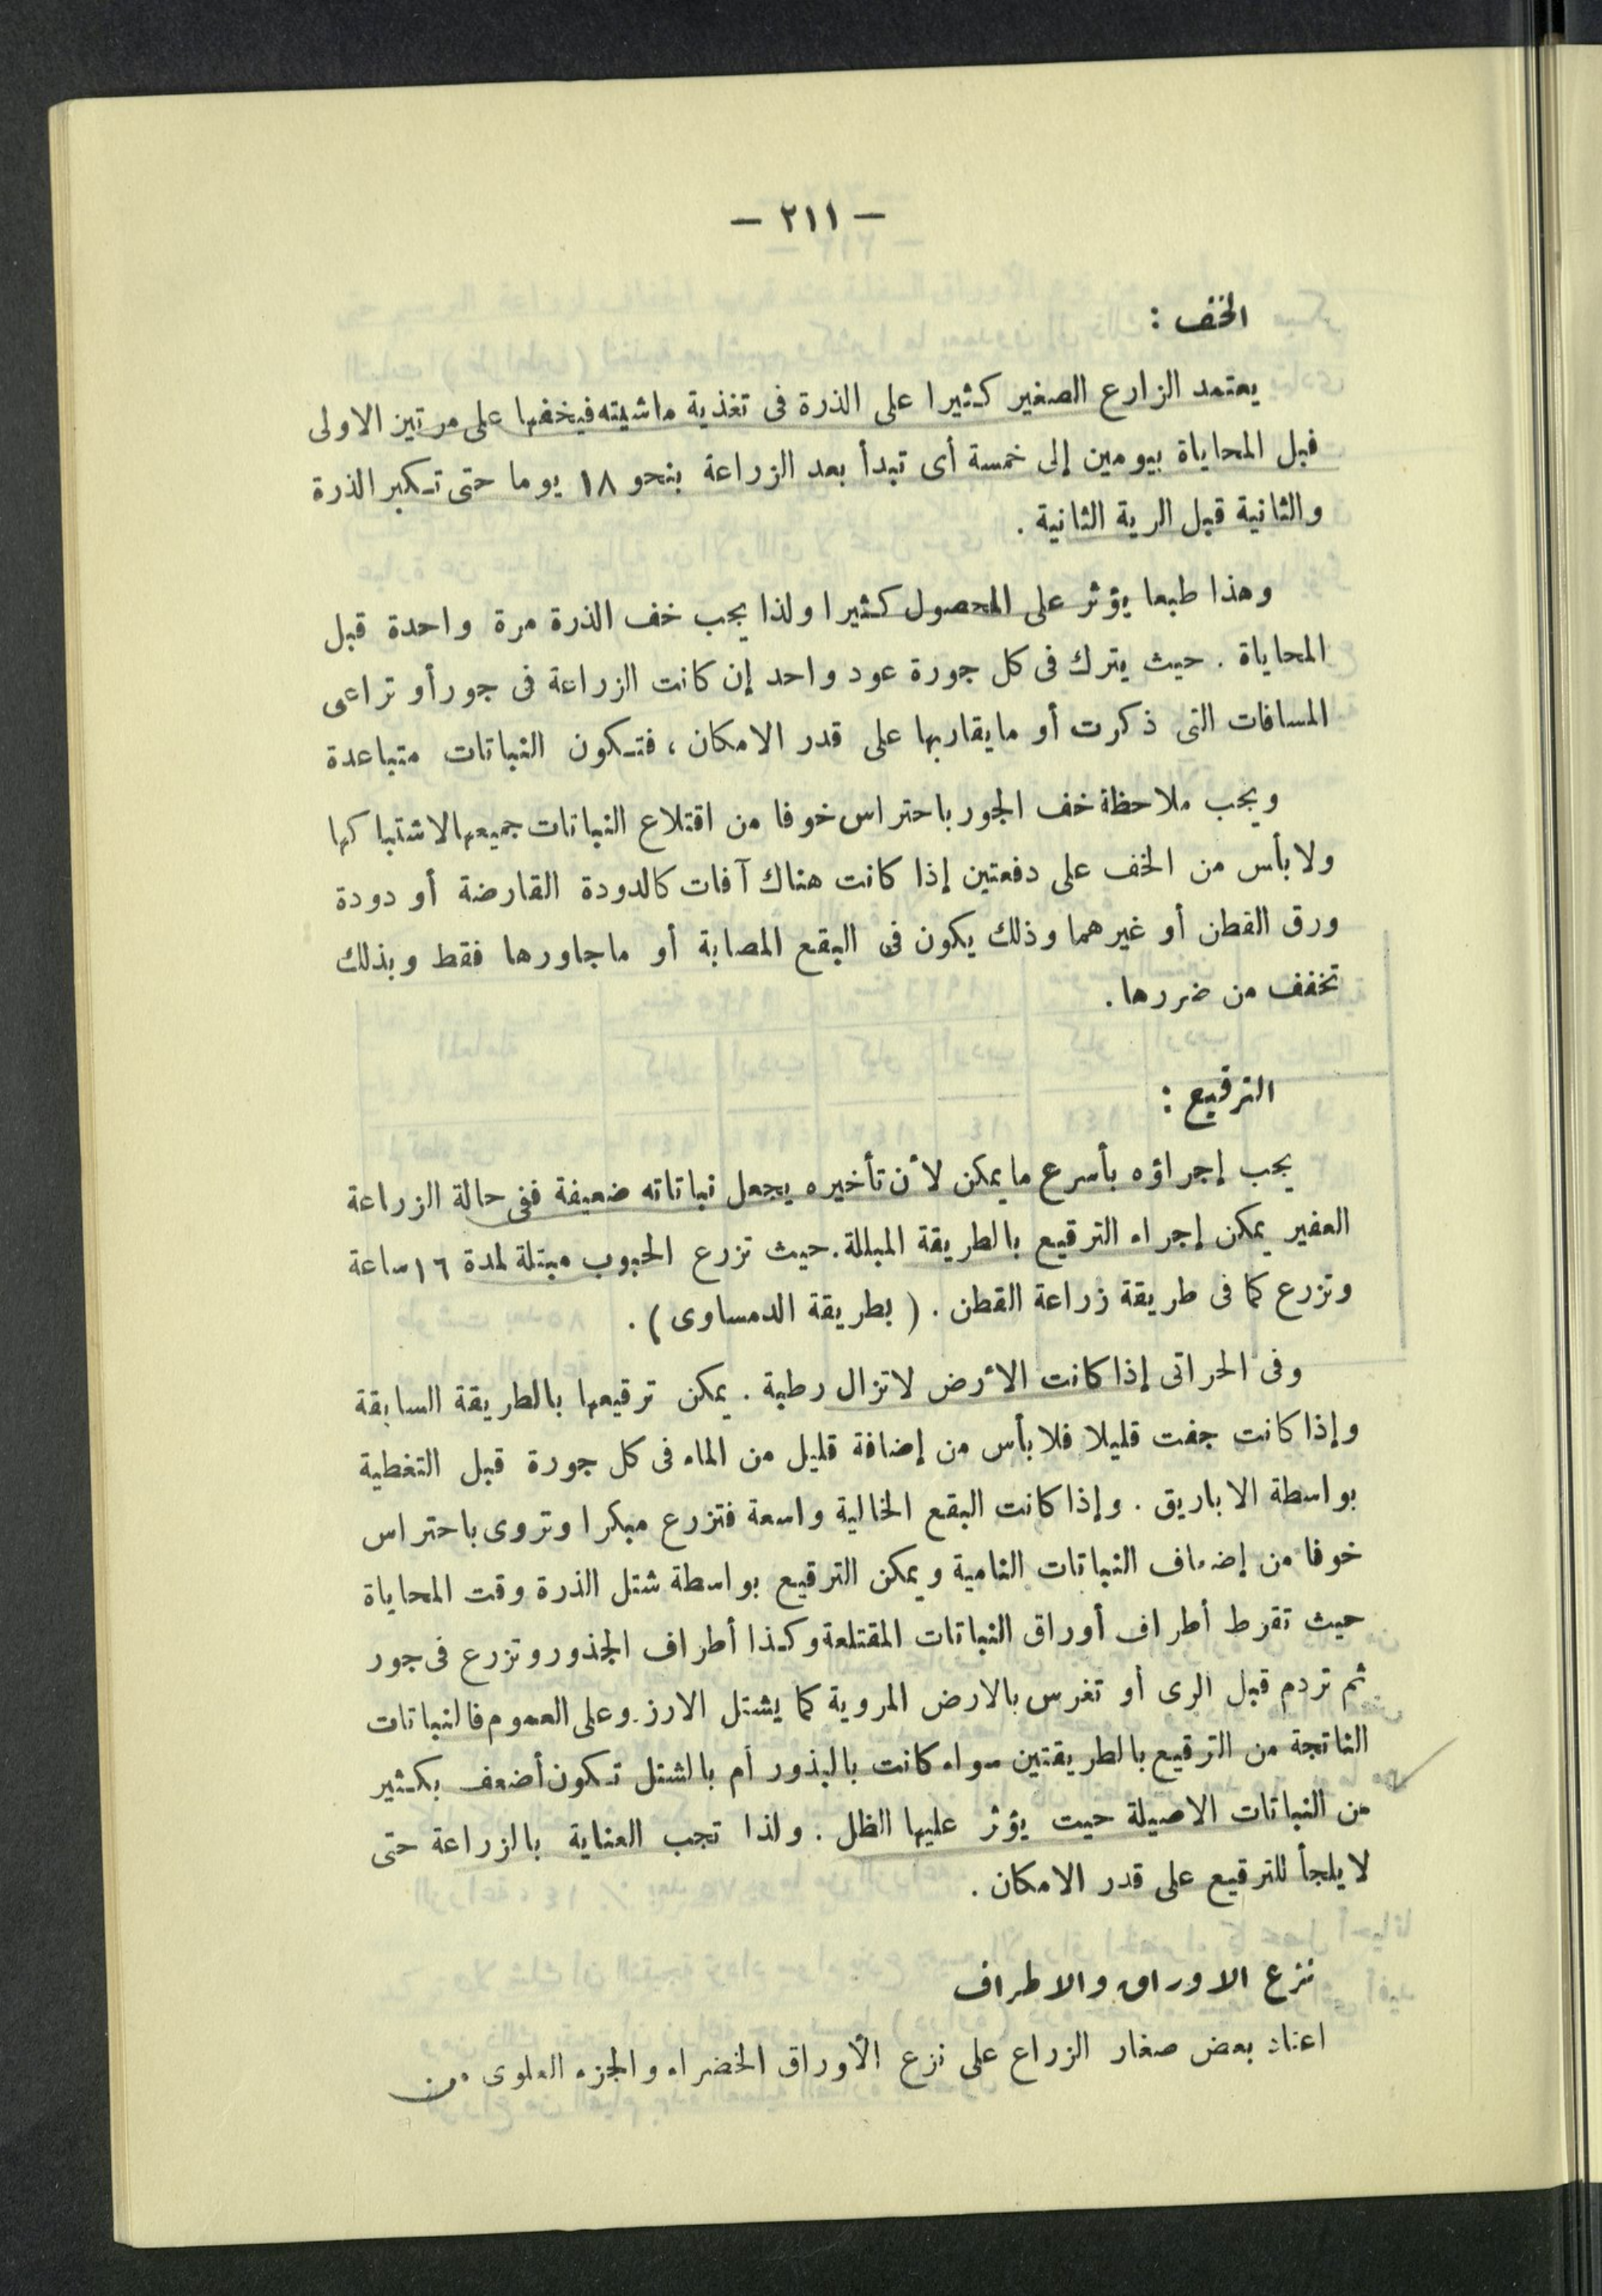 — ٢١١ —
الخف :
يعتمد الزارع الصغير كثيرا على الذرة فى تغذية ماشيته فيخفها على مرتين الاولى
قبل المحاياة بيومين إلى خمسة أى تبدأ بعد الزراعة بنحو ١٨ يوما حتى تكبر الذرة
والثانية قبل الرية الثانية .
وهذا طبعا يؤثر على المحصول كثيرا ولذا يجب خف الذرة مرة واحدة قبل
المحاياة . حيث يترك فى كل جورة عود واحد إن كانت الزراعة فى جور أو تراعى
المسافات التى ذكرت أو ما يقاربها على قدر الامكان ، فتكون النباتات متباعدة
ويجب ملاحظة خف الجور باحتراس خوفا من اقتلاع النباتات جميعها لاشتباكها
ولا بأس من الخف على دفعتين إذا كانت هناك آفات كالدودة القارضة أو دودة
ورق القطن أو غيرهما وذلك يكون فى البقع المصابة أو ما جاورها فقط وبذلك
تخفف من ضررها .
الترقيع :
يجب إجراؤه بأسرع ما يمكن لأن تأخيره يجعل نباتاته ضعيفة ففى حالة الزراعة
العفير يمكن إجراء الترقيع بالطريقة المبللة . حيث تزرع الحبوب مبتلة لمدة ١٦ ساعة
وتزرع كما فى طريقة زراعة القطن . ( بطريقة الدمساوى ) .
وفى الحراتى إذا كانت الأرض لا تزال رطبة . يمكن ترقيعها بالطريقة السابقة
وإذا كانت جفت قليلا فلا بأس من إضافة قليل من الماء فى كل جورة قبل التغطية
بواسطة الاباريق . وإذا كانت البقع الخالية واسعة فتزرع مبكرا وتروى باحتراس
خوفا من إضعاف النباتات النامية ويمكن الترقيع بواسطة شتل الذرة وقت المحاياة
حيث تقرط أطراف أوراق النباتات المقتلعة وكذا أطراف الجذور وتزرع فى جور
ثم تردم قبل الرى أو تغرس بالارض المروية كما يشتل الارز . وعلى العموم فالنباتات
الناتجة من الترقيع بالطريقتين سواء كانت بالبذور أم بالشتل تكون أضعف بكثير
من النباتات الاصيلة حيت يؤثر عليها الظل . ولذا تجب العناية بالزراعة حتى
لا يلجأ للترقيع على قدر الامكان .
نزع الاوراق والاطراف
اعتاد بعض صغار الزراع على نزع الأوراق الخضراء والجزء العلوى من